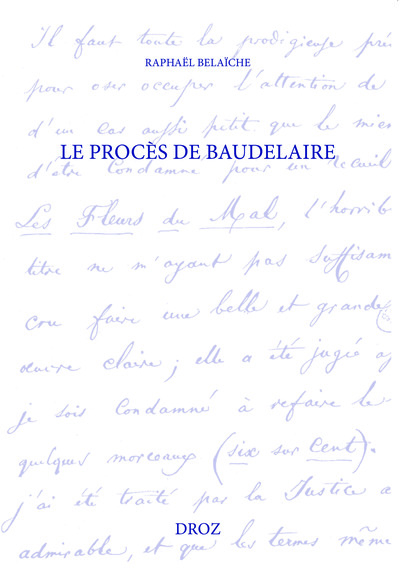 Il faut toute la prodigieuse prés
RAPHAËL BELAÏCHE
pour oser occuper l'attention de
d'un cas aussi petit que le mien
LE PROCÈS DE BAUDELAIRE
d'être condamné pour un recueil
Les Fleurs du Mal, l'horrib
titre ne m'ayant pas suffisam
cru faire une belle et grande
œuvre claire ; elle a été jugée a
je sois condamné à refaire le
quelques morceaux (six sur cent).
j'ai été traité par la Justice a
DROZ
admirable, et que les termes même